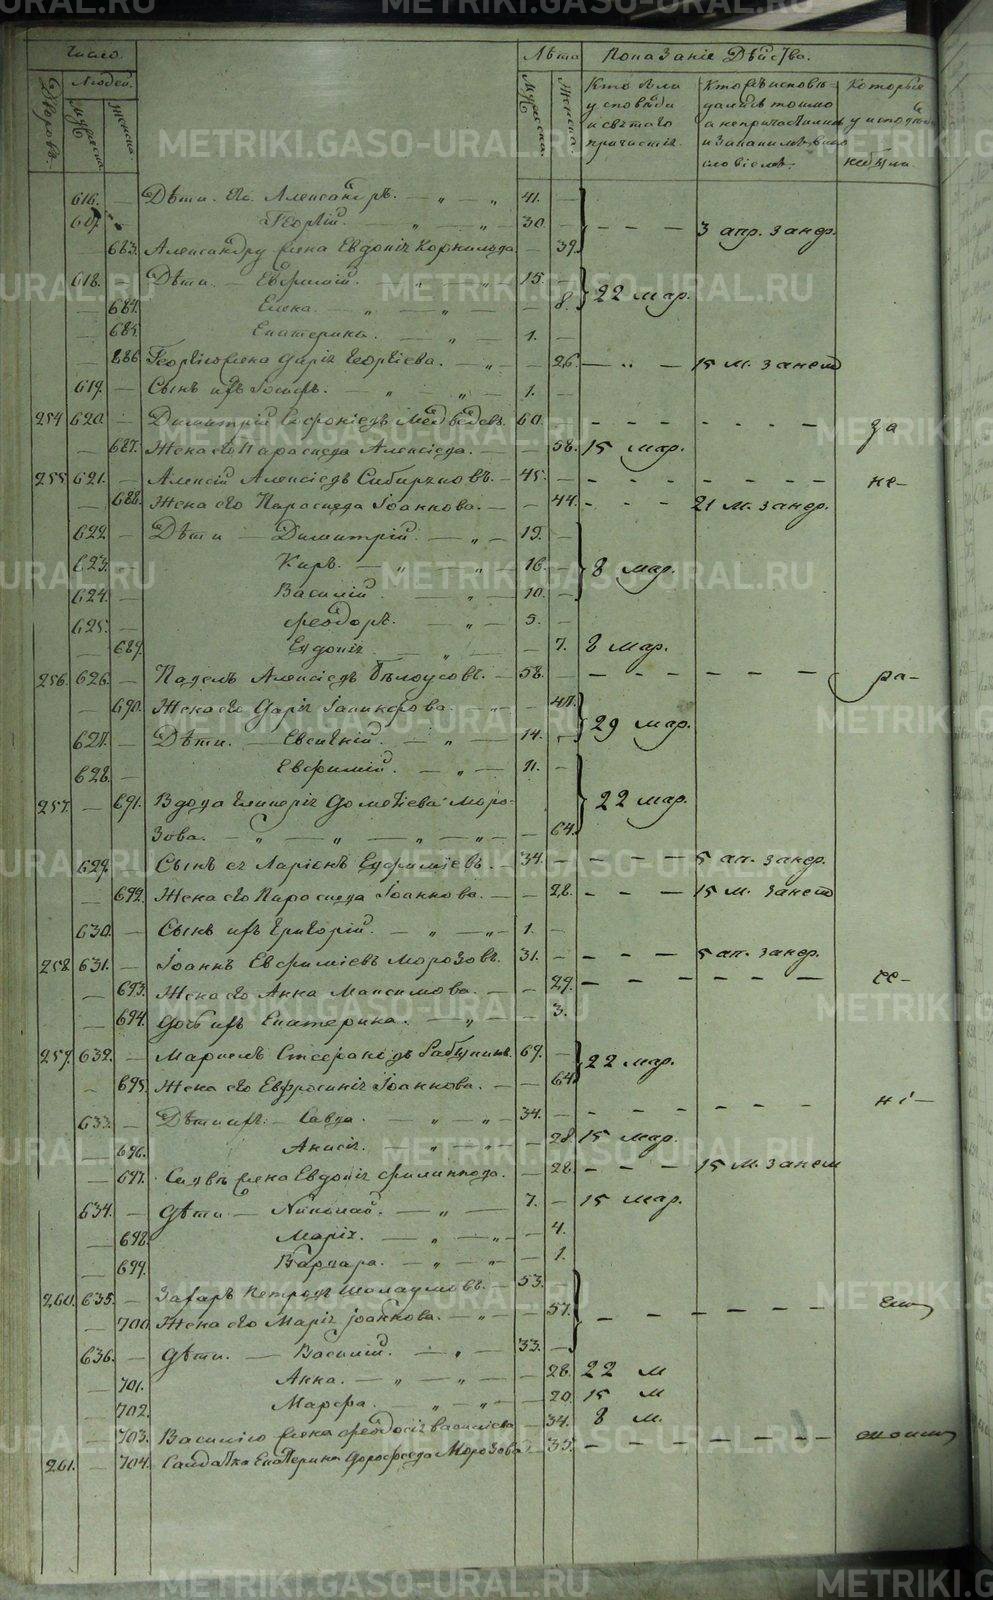 Число
Людей.
Дворовъ.
Мужеска
Женска
Лѣта
Мужеска.
Женска
Показаніе Дѣйства.
Кто были у исповѣди и святаго причастія.
Кто же исповѣдались токмо а не причастились и за какимъ винословіемъ.
Которые у исповѣди не были
616. — Дѣти его Александръ. — „ — „ 41. —
617. Георгій. „ — „ 30. — — — — 3 апр. за ндр.
— 683. Александру жена Евдокія Корнилова — 39.
618. — Дѣти. — Евфимій. „ — „ 15. — 22 мар.
— 684. Елена. — „ — „ — — 8.
— 685. Екатерина. — „ — 1.
— 686 Георгію жена Дарія Георгіева. — „ — — 26. — „ — 15 м. за нест
619. — Сынъ ихъ Іосифъ. — „ — „ — 1. —
254 620. — Димитрій Софроніевъ Медвѣдевъ. 60. — — — — — — за
— 687. Жена его Параскева Алексіева. — — 58. 15 мар.
255 621. — Алексій Алексіевъ Сибиряковъ. — 45. — — — — — — — не-
— 688. Жена его Параскева Іоаннова. — — 44. — — — 21 м. за ндр.
622. — Дѣти — Димитрій. — „ — 19. —
623. — Киръ. — „ — „ — 16. — 8 мар.
624. — Василій. — „ — 10. —
625. — Феодоръ. — „ — 5. —
— 689. Евдокія — „ — — 7. 8 мар.
256. 626. — Павелъ Алексіевъ Бѣлоусовъ. — 58. — — — — — — — ра-
— 690. Жена его Дарія Іакинфова. „ — — 47.
627. — Дѣти. — Евсигній. — „ — 14. — 29 мар.
628. — Евфимій. — „ — 11. —
257. — 691. Вдова Гликерія Дометіева Моро-
зова. — „ — „ — „ — „ — — 64. 22 мар.
629. — Сынъ ея Ларіонъ Евфиміевъ. — 34. — — — — 5 ап. за ндр.
— 692. Жена его Параскева Іоаннова. — — 28. — — — 15 м. за нест
630. — Сынъ ихъ Григорій. — „ — „ — 1. —
258. 631. — Іоаннъ Евфиміевъ Морозовъ. — 31. — — — — 5 ап. за ндр.
— 693. Жена его Анна Максимова. — — 29. — — — — — — —
— 694. Дочь ихъ Екатерина. — „ — — 3.
259. 632. — Маркелъ Стефановъ 69. — 22 мар.
— 695. Жена его Евфросинія Іоаннова. — — 64.
633. — Дѣти ихъ. — Савва. — „ — „ — 34. — — — — — — — ні —
— 696. Анисія. „ — — 28. 15 мар.
— 697. Саввѣ жена Евдокія Филиппова. — 28. — — — 15 м. за нест
634. — Дѣти — Николай. — „ — 7. — 15 мар.
— 698. Марія. — „ — „ — — 4.
— 699. Варвара. — „ — „ — — 1.
260. 635. — Захаръ Петровъ — 53. —
— 700. Жена его Марія Іоаннова. — „ — — 57. — — — — — —
636. — Дѣти. — Василій. — „ — 33. —
— 701. Анна. — „ — „ — — 28. 22 м
— 702. Марфа. — „ — „ — 20. 15 м
— 703. Василію жена Феодосія Василіева — 34. 8 м.
261. — 704. Салдатка Екатерина Дорофеева Морозова — 35. — — — — — — —
METRIKI.GASO-URAL.RU